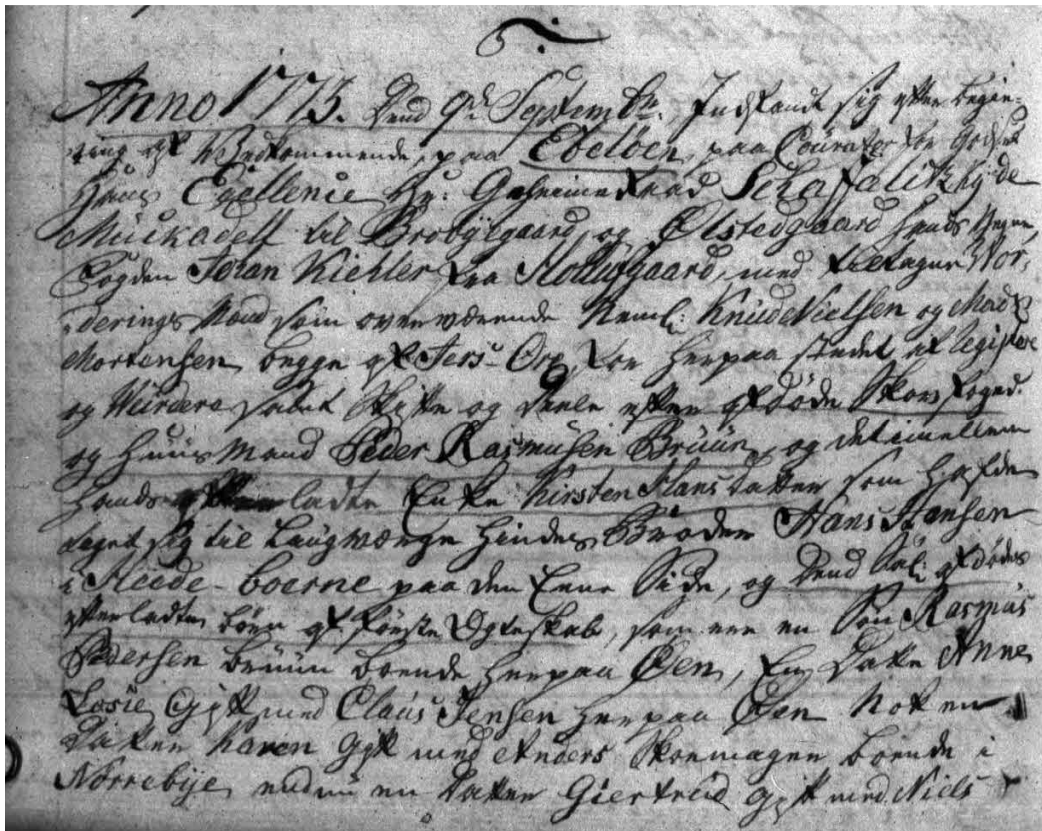 Anno 1773. Dend 9de Septembr. Indfandt sig efter begie-
ring af Vedkommende, paa Ebelben, paa Courater for godset
Hans Exellence Hr: Geheime Raad Schaffalitzky de
Muckadell til Brobygaard og Ølstedgaard hands vegne,
Fogden Johan Kiehler fra Hollufgaard, med tiltagne Vor-
derings Mænd som overværende Neml: Knud Nielsen og Mads
Mortensen begge af Fers- Orp, for herpaa stedet at registere
og Wurdere samt Skifte og Deele efter afdøde Skovfoged
og Huus Mand Peder Rasmusen Bruun, og det imellem
hands efterladte Enke Kirsten Hans Datter som hafde
taget sig til Laugværge hindes Broder Hans Hansen
i Heede-boerne paa den Eene Side, og Dend Sal: afdødes
efterladte børn af første Ægteskab, som ere en Søn Rasmus
Pedersen Bruun boende herpaa Øen, En Datter Anne
Losie Gift med Claus Jensen herpaa Øen Nok en
Datter Karen Gift med Anders Skoemager boende i
Nørrebye, endnu en Datter Giertrud Gift med Niels